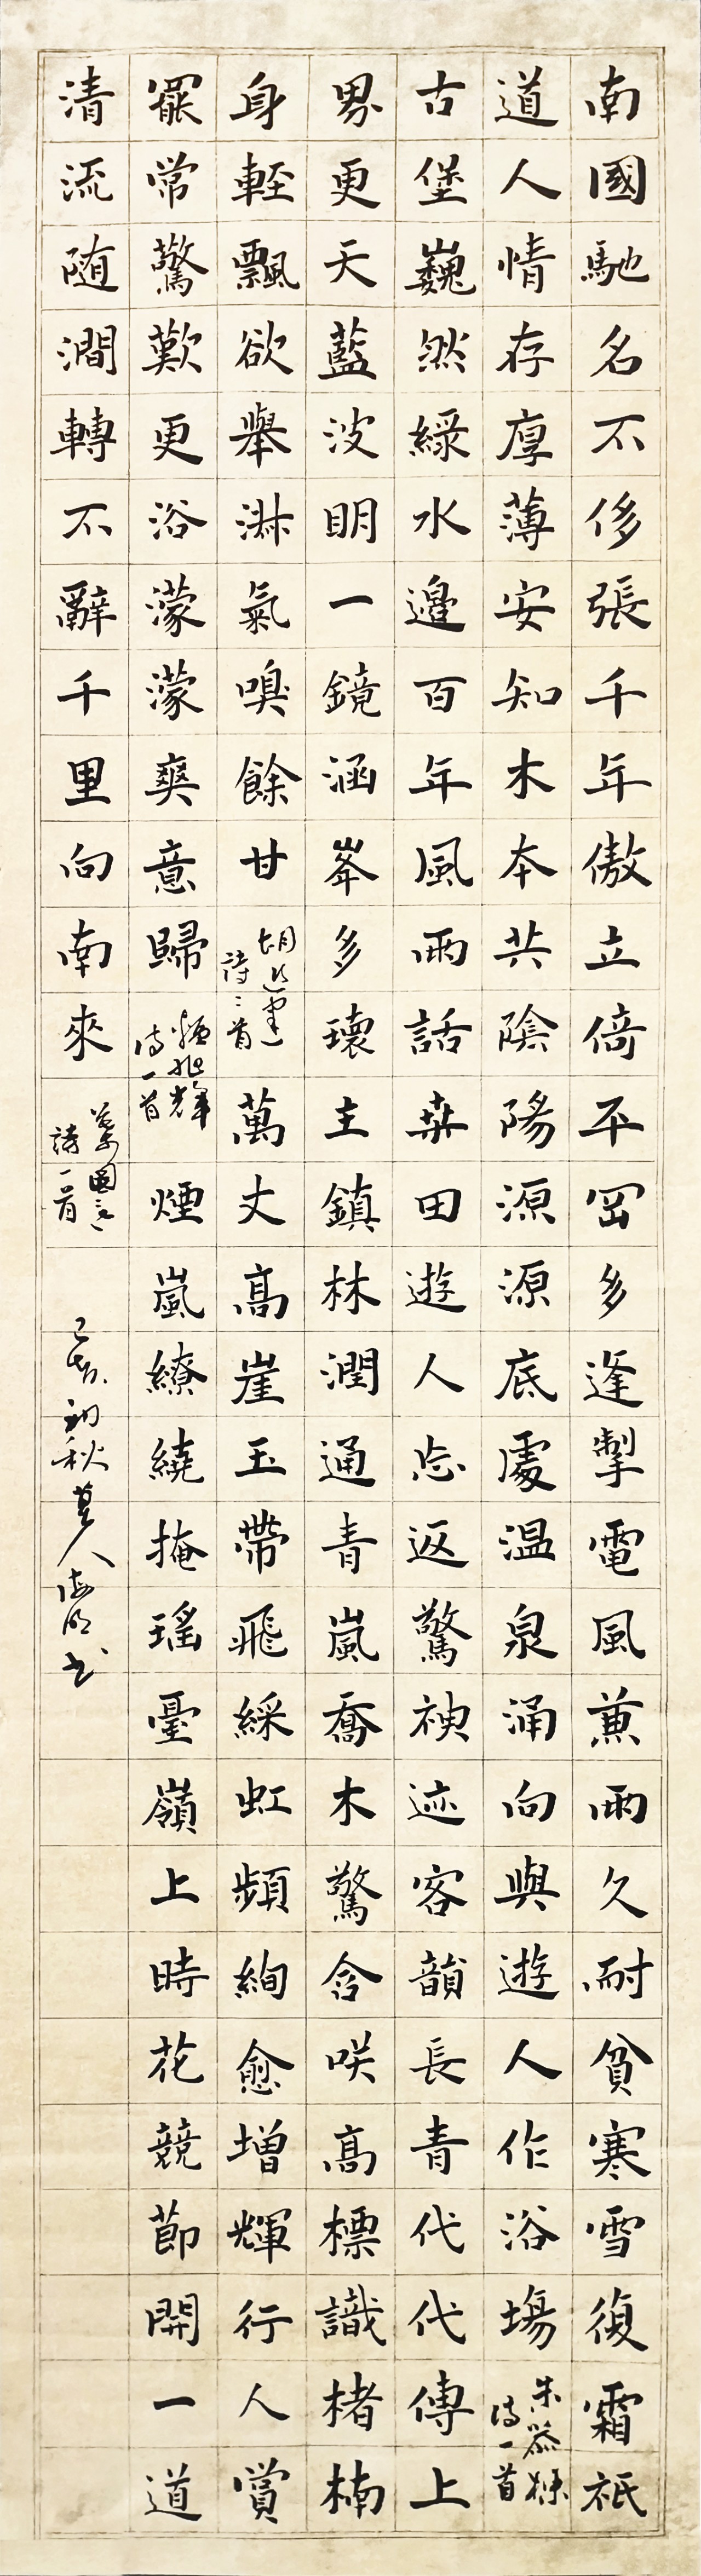 南國馳名不侈張千年傲立倚平岡多逢掣電風兼雨久耐貧寒雪復霜祇
道人情存厚薄安知木本共陰陽源源底處温泉涌向與遊人作浴場
詩一首
古堡巍然綠水邊百年風雨話桑田遊人忘返驚神迹客韻長青代代傳上
界更天藍波明一鏡涵峯多瓌主鎮林潤通青嵐喬木驚含咲高標識楮楠
身輕飄欲舉淋氣嗅餘甘
詩二首
萬丈高崖玉帶飛綵虹頻絢愈增輝行人賞
罷常驚歎更浴濛濛爽意歸
詩一首
煙嵐繚繞掩瑤臺嶺上時花競節開一道
清流随澗轉不辭千里向南來
詩一首
己亥初秋莫人海明书